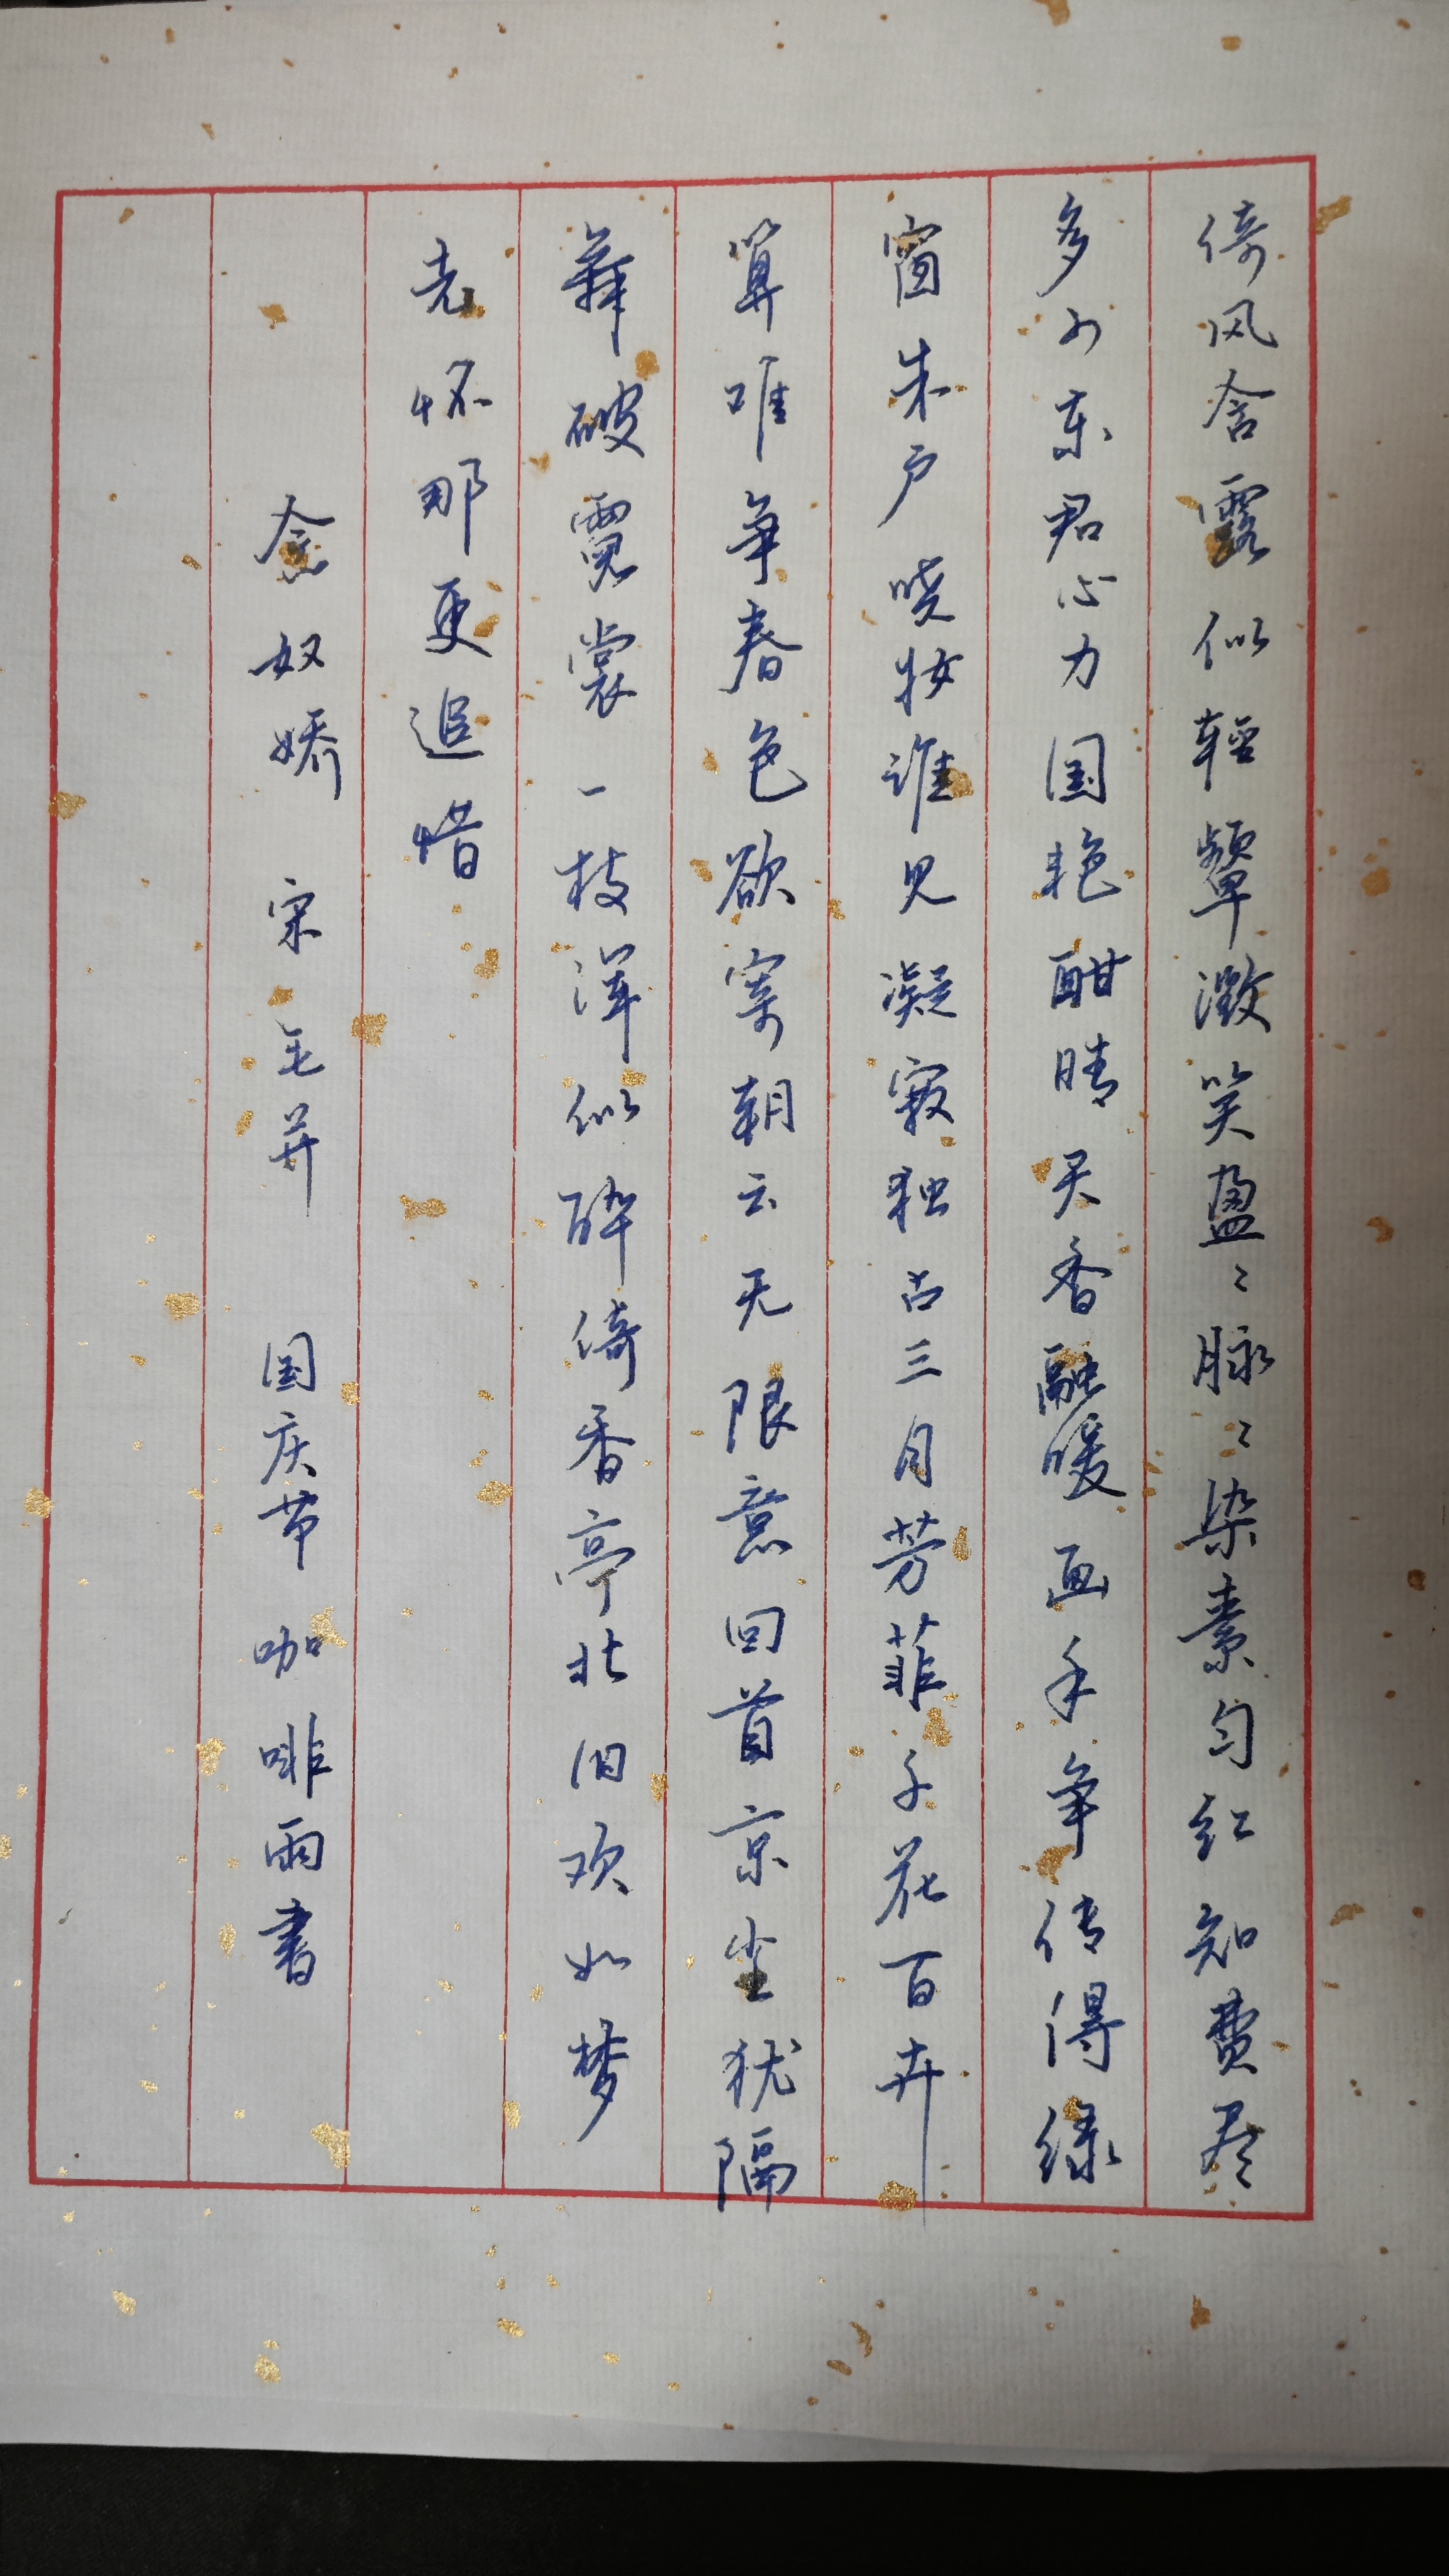 倚风含露似轻颦微笑盈〻脉〻染素匀红知费尽
多少东君心力国艳酣晴天香融暖画手争传得绿
窗朱户晓妆谁见凝寂独占三月芳菲千花百卉
算唯争春色欲寄朝云无限意回首京尘犹隔
舞破霓裳一枝浑似醉倚香亭北旧欢如梦
老怀那更追惜
念奴娇 宋毛开 国庆节 咖啡雨书